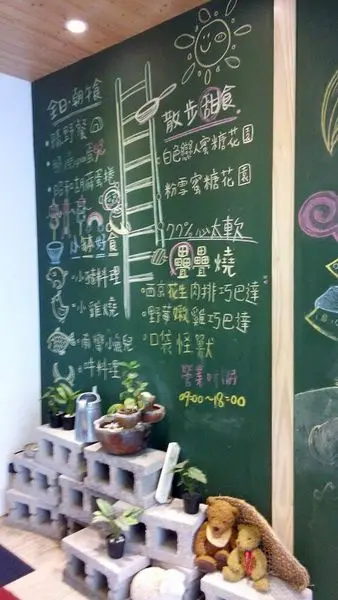 全日·朝午食
藤野餐
昭和胡蘿蔔捲
小豬料理
小雞燒
南灣小魚兒
牛料理
散步甜食
白色戀人蜜糖花園
粉雪蜜糖花園
77%心太軟
疊疊燒
西京花生肉排巧巴達
野莓嫩雞巧巴達
口袋怪獸
營業時間
09:00~18:00